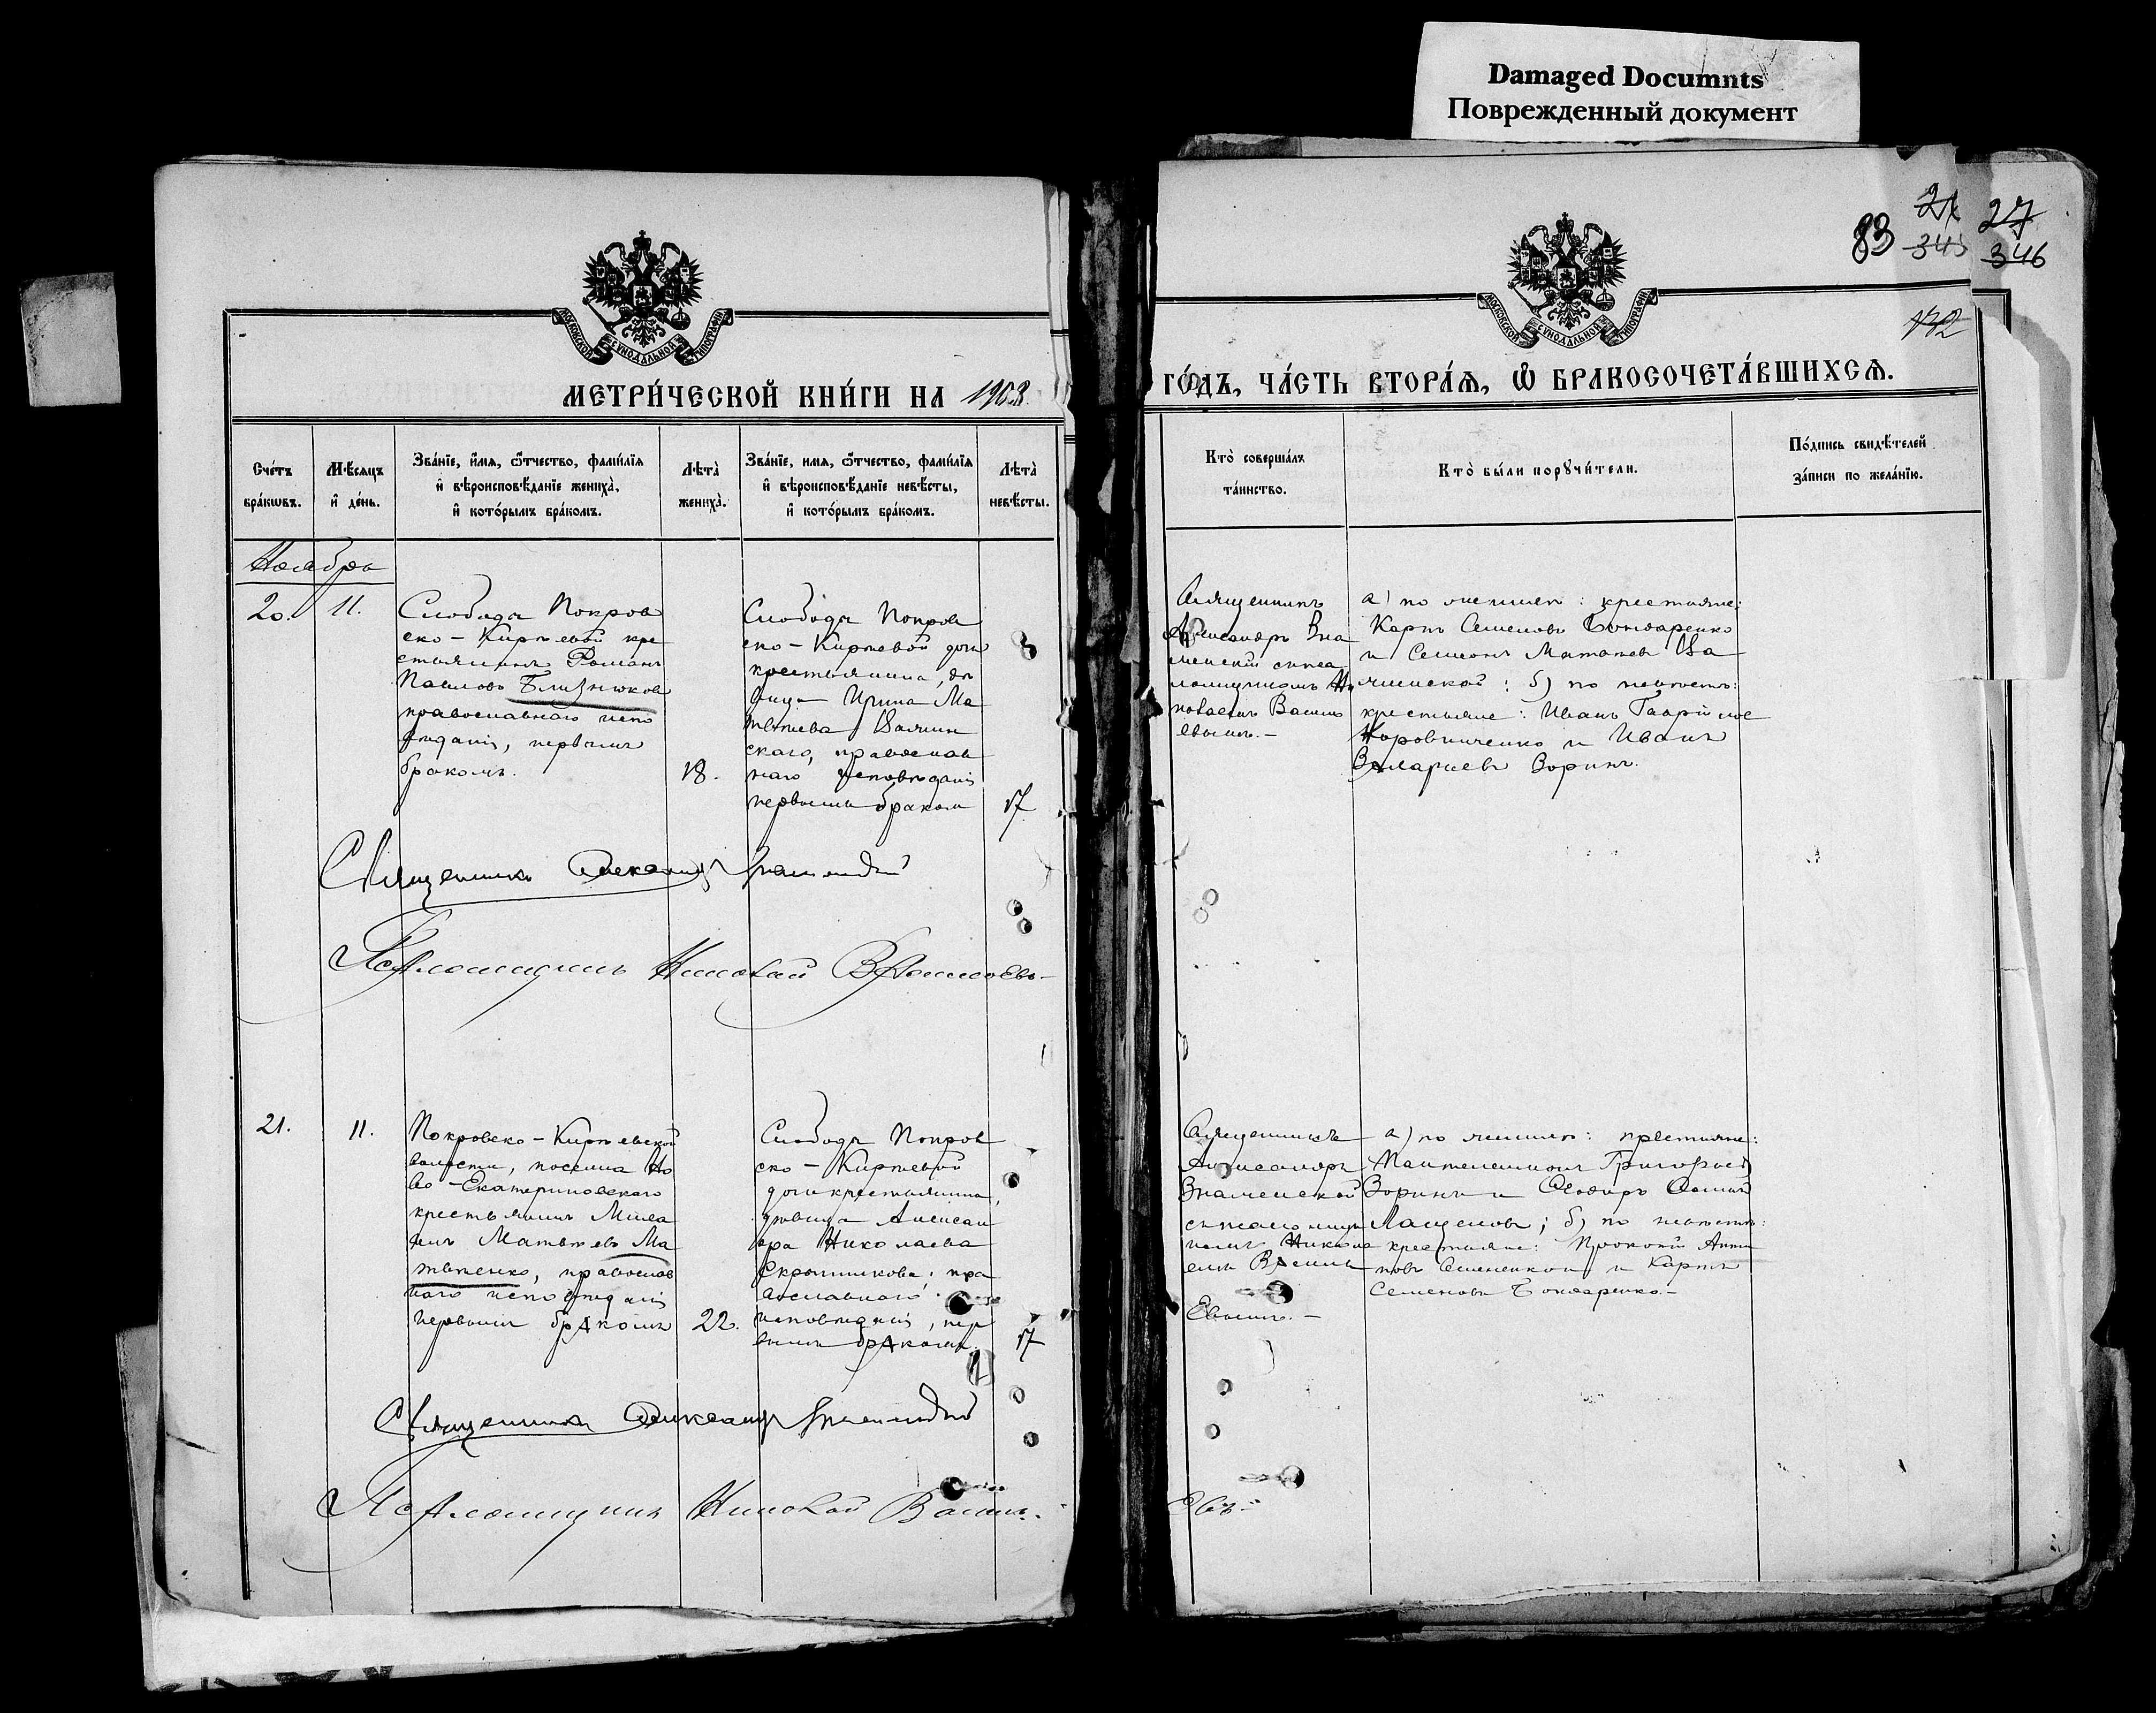 Damaged Documnts
Поврежденный документ
83 21 27
345 346
132
МОСКОВСКОЙ СѴНОДАЛЬНОЙ ТИПОГРАФІИ
МОСКОВСКОЙ СѴНОДАЛЬНОЙ ТИПОГРАФІИ
МЕТРИ́ЧЕСКОЙ КНИ́ГИ НА 1908
ГО́ДЪ, ЧА́СТЬ ВТОРА́Ѧ, Ѽ БРАКОСОЧЕТА́ВШИХСѦ.
Сче́тъ
бра́кѡвъ.
Мѣ́сѧцъ
и҆ де́нь.
Зва́нїе, и҆́мѧ, ѻ҆́тчество, фамї́лїѧ
и҆ вѣроисповѣ́данїе жениха̀,
и҆ кото́рымъ бра́комъ.
Лѣта̀
жениха̀.
Зва́нїе, имѧ, ѻ҆́тчество, фамї́лїѧ
и҆ вѣроисповѣ́данїе невѣ́сты,
и҆ кото́рымъ бра́комъ.
Лѣта̀
невѣ́сты.
Кто̀ соверша́лъ
та́инство.
Кто̀ бы́ли порꙋчи́тели.
По́дпись свидѣ́телей
за́писи по жела́нїю.
Ноября
20. 11.
Слободы Покров
ско-Киреевой кре
стьянинъ Романъ
Павловъ Близнюковъ
православнаго испо
веданія, первымъ
бракомъ.
18.
Слободы Покров
ско-Киреевой дочь
крестьянина, дѣ
вица Ирина Ма
твѣева
скаго, православ
наго исповѣданія
первымъ бракомъ
17
Священникъ
Александръ Зна
менскій съ пса
ломщикомъ Ни
колаемъ Василь
евымъ.-
а) по женихѣ: крестьяне:
Карпъ Семеновъ Бондаренко
и Семенъ Матвѣевъ
б) по невѣстѣ:
крестьяне: Иванъ
и Иванъ
Зоринъ.
Священникъ Александръ Знаменскій
Псаломщикъ Николай Васильевъ-
21. 11.
Покровско-Киреевской
волости, поселка Но
во-Екатериновскаго
крестьянинъ Миха
илъ Матвѣевъ Ма
твѣенко, православ
наго исповѣданія
первымъ бракомъ
22.
Слободы Покров
ско-Киреевой
дочь крестьянина,
дѣвица Александ
ра Николаева
Скрынникова, пра
вославнаго
исповѣданія, пер
вымъ бракомъ.
17
Священникъ
Александръ
Знаменской
съ псаломщи
комъ Никола
емъ Василь
евымъ.-
а) по женихѣ: крестьяне:
Пантелеимонъ Григорьевъ
Зоринъ и Ѳеодоръ
Лащеновъ; б) по невѣстѣ:
крестьяне: Прокопій Анти
повъ и Карпъ
Семеновъ Бондаренко.-
Священникъ Александръ Знаменскій
Псаломщикъ Николай Василь-
евъ-